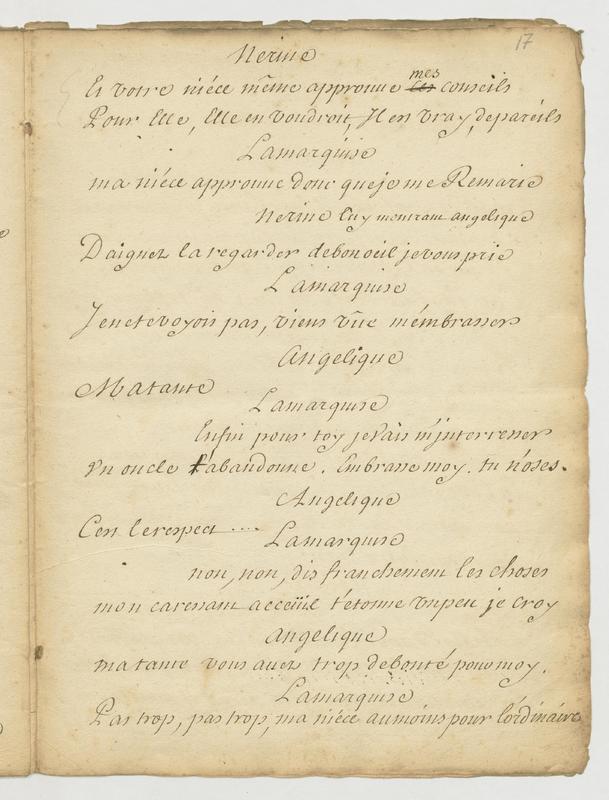 17
Nerine
Et votre niéce même approuve ses mes conseils
Pour Elle, Elle en voudroit, Il est vray, de pareils
Lamarquise
ma niéce approuve donc que je me Remarie
Nerine luy montrant angelique
Daignez la regarder de bon oeil je vous prie
Lamarquise
Je ne te voyois pas, viens vite m'embrasser
Angelique
Ma tante
Lamarquise
Enfin pour toy je vais m'interresser
Vn oncle t'abandonne. Embrasse moy. tu n'oses.
Angelique
C'est le respect ....
Lamarquise
non, non, dis franchement les choses
mon caressant acceüil t'etonne vn peu je croy
angelique
ma tante vous avez trop de bonté pour moy.
Lamarquise
Pas trop, pas trop, ma niéce au moins pour l'ordinaire